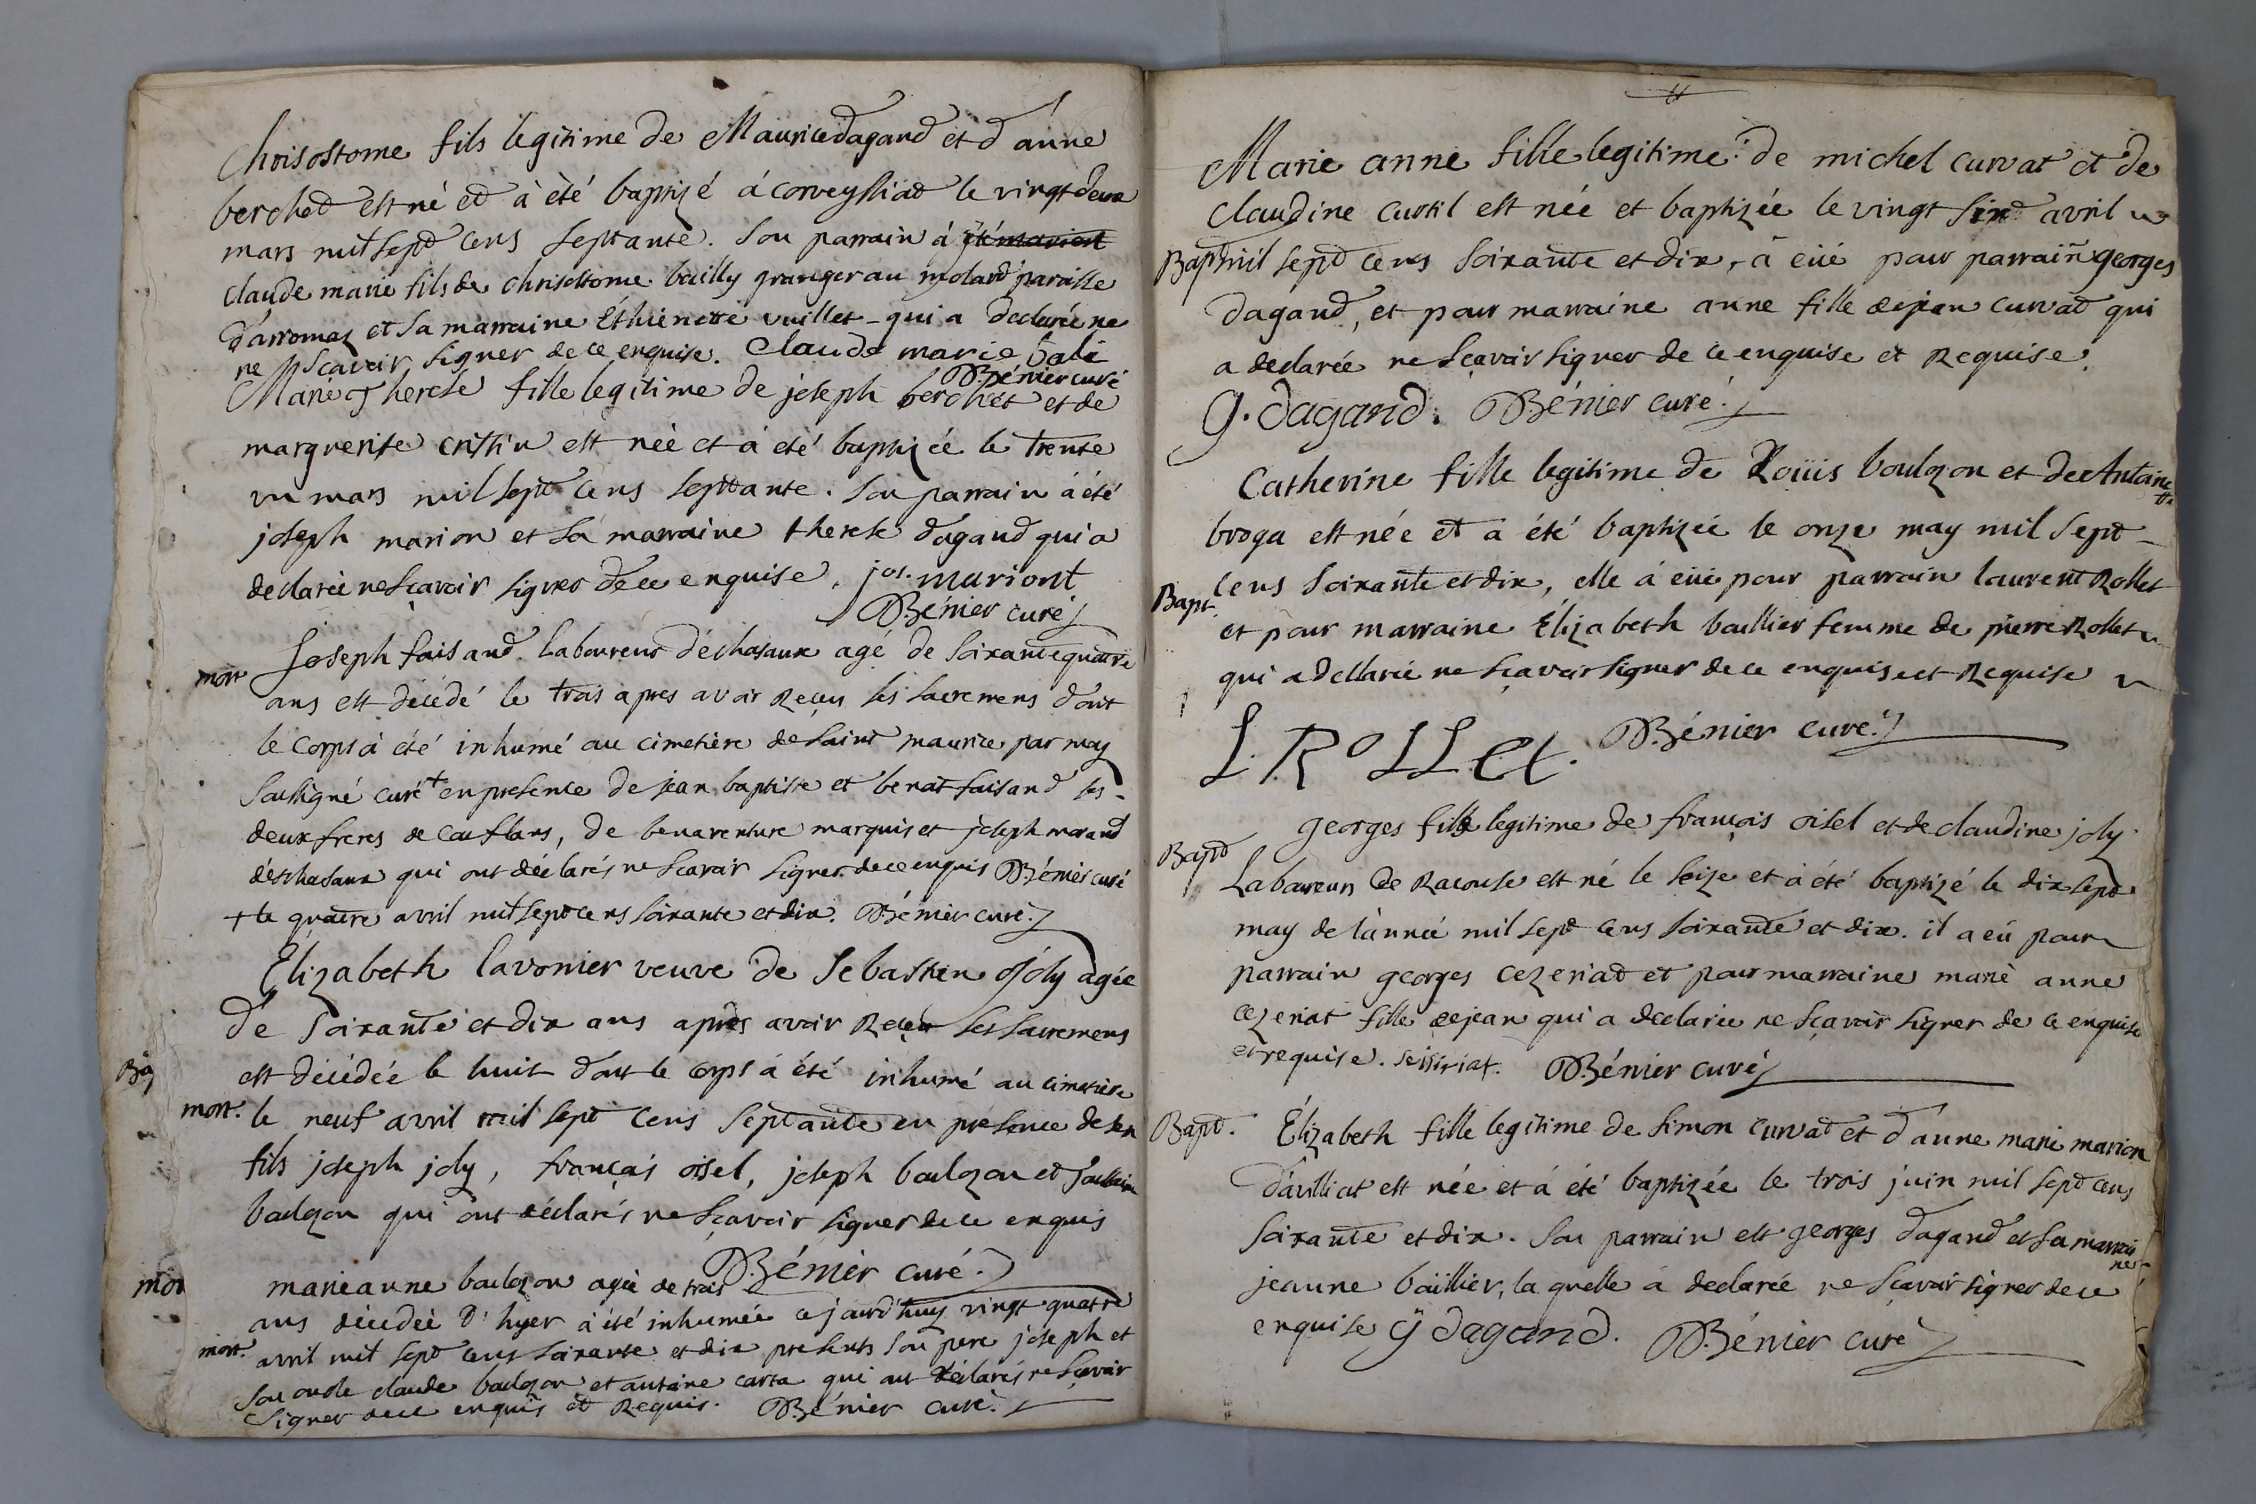 Chrisostome fils legitime de Maurice dagand et d'anne
berched est né et à été baptizé à corveyssiad le vingt deux
mars mil sept cens septante. Son parrain à été
claude marie fils de chrisostome bailly granger au molard paroisse
d'arromaz et sa marraine Ethienette vuillet qui a declarée ne
ne sçavoir signer de ce enquise. Claude marie bali
Bénier curé
Marie Therese fille legitime de joseph berchet et de
marguerite cristin est née et à été baptizée le trente
un mars mil sept cens septante. Son parrain à été
joseph marion et sa marraine therese dagand qui a
declarée ne sçavoir signer de ce enquise. jos. mariont
Bénier curé
mort Joseph faisand laboureur déchasaux agé de soixante quatre
ans est décédé le trois apres avoir reçeu les sacremens dont
le corps à été inhumé au cimetière de saint maurice par moy
soussigné curé + en presence de jean baptiste et benoit faisand ses
deux freres de conflans, de benaventure marquis et joseph morand
déschasaux qui ont déclarés ne sçavoir signer de ce enquis Bénier curé
+ le quatre avril mil sept cens soixante et dix. Bénier curé
Élizabeth lavonier veuve de Sebastien joly agée
de soixante et dix ans après avoir reçeu les sacremens
est décédée le huit dont le corps à été inhumé au cimetière
mort. le neuf avril mil sept cens septante en présence de son
fils joseph joly, françois oisel, joseph boulozon et
boulozon qui ont déclarés ne sçavoir signer de ce enquis
Bénier curé.
mor marie anne boulozon agée de trois
ans décédée d'hyer à été inhumée ce jourd'huy vingt quatre
mort. avril mil sept cens soixante et dix presents son pere joseph et
son oncle claude boulozon et antoine carta qui ont déclarés ne sçavoir
signer de ce enquis et requis. Bénier curé.
Marie anne fille legitime de michel curvat et de
Claudine curtil est née et baptizée le vingt six avril
Bapt mil sept cens soixante et dix, à eüe pour parrain georges
dagand, et pour marraine anne fille de jean curvat qui
a declarée ne sçavoir signer de ce enquise et requise.
g. dagand. Bénier curé.
Catherine fille legitime de Loüis boulozon et de Antoinette
broga est née et a été baptizée le onze may mil sept
Bapt. cens soixante et dix, elle à eüe pour parrain laurent Rollet
et pour marraine Élizabeth baillier femme de pierre Rollet
qui a declarée ne sçavoir signer de ce enquise et requise
L. ROLLet. Bénier curé.
georges fils legitime de françois oisel et de claudine joly
Bapt Laboureur de Racouse est né le seize et à été baptizé le dix sept
may de l'année mil sept cens soixante et dix. il a eü pour
parrain georges cezeriat et pour marraine marie anne
cezeriat fille de jean qui a declarée ne sçavoir signer de ce enquise
et requise. seissiriat. Bénier curé
Bapt. Élizabeth fille legitime de simon curvat et d'anne marie marion
davilliat est née et à été baptizée le trois juin mil sept cens
soixante et dix. Son parrain est georges dagand et sa marraine
jeanne baillier, la quelle à declarée ne sçavoir signer de ce
enquise g dagand. Bénier curé